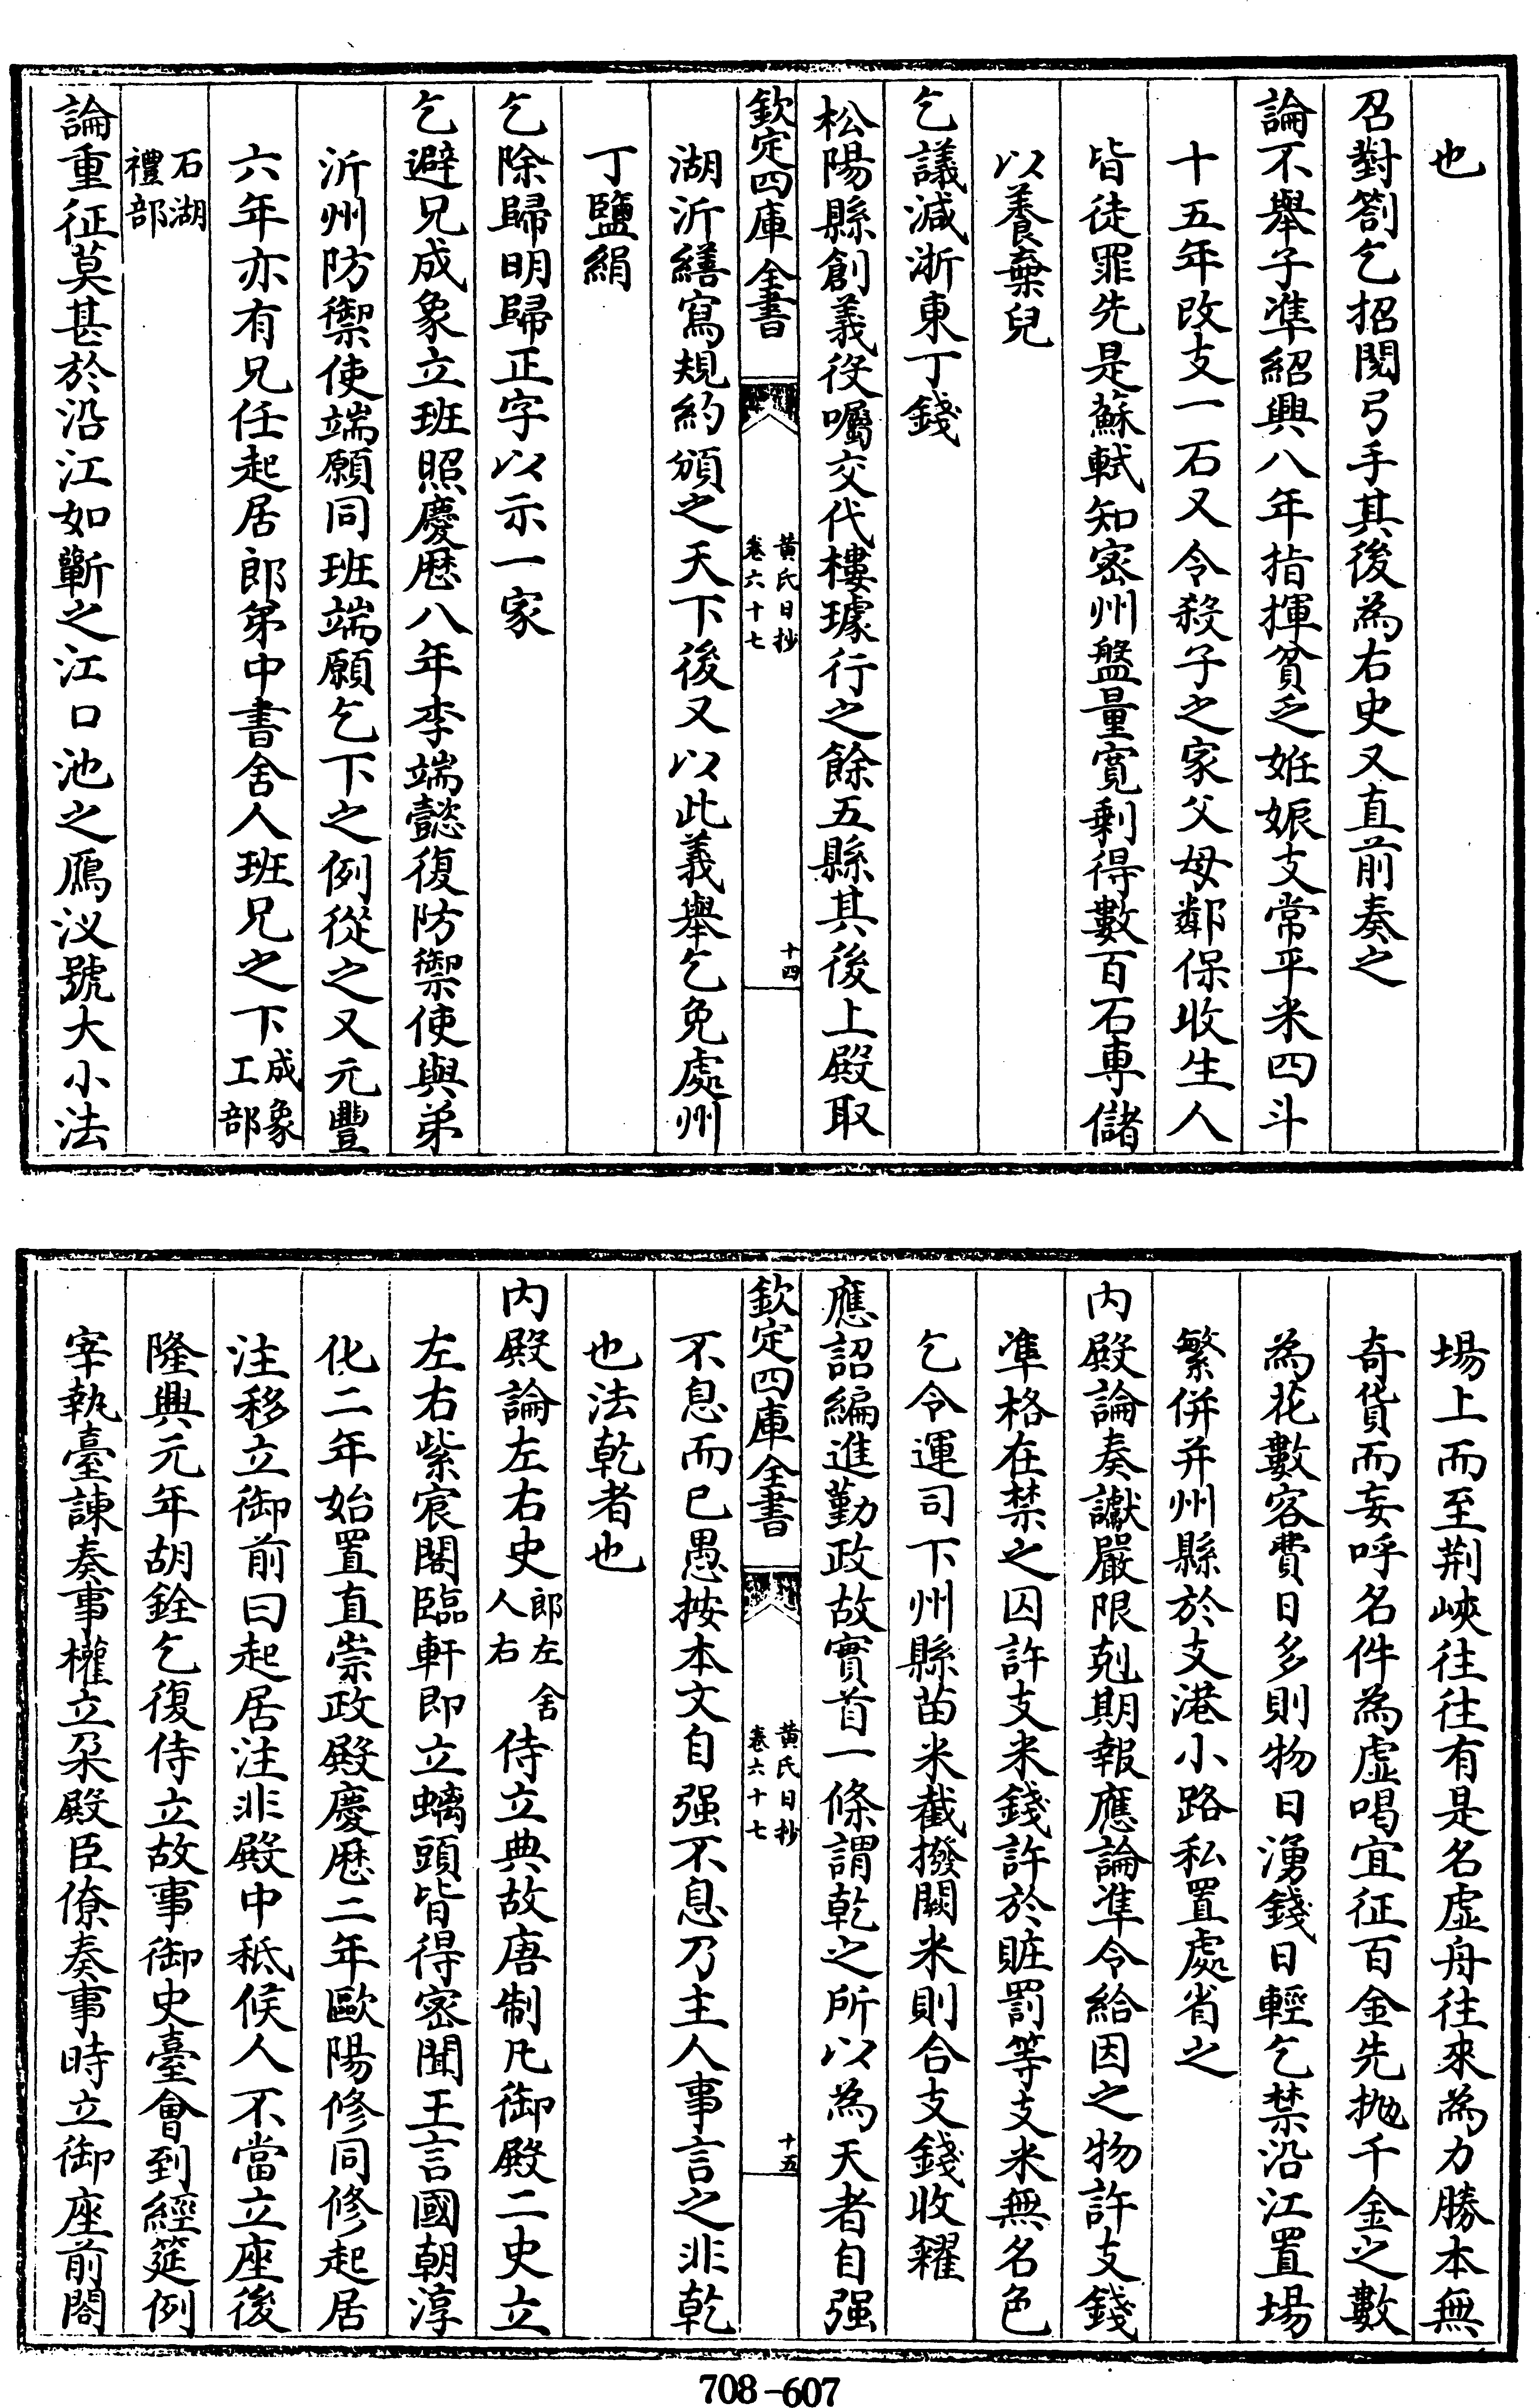 也
召對劄乞招閱弓手其後為右史又直前奏之
論不舉子準紹興八年指揮貧乏姙娠支常平米四斗
十五年改支一石又令殺子之家父母鄰保收生人
皆徒罪先是蘇軾知密州盤量寛剩得數百石專儲
以養棄兒
乞議減浙東丁錢
松陽縣創義役囑交代樓璩行之餘五縣其後上殿取
欽定四庫全書
黄氏日抄
卷六十七
十四
湖沂繕寫規約頒之天下後又以此義舉乞免處州
丁鹽絹
乞除歸明歸正字以示一家
乞避兄成象立班照慶厯八年李端懿復防禦使與弟
沂州防禦使端願同班端願乞下之例從之又元豐
六年亦有兄任起居郎弟中書舍人班兄之下成象
工部
石湖
禮部
論重征莫甚於沿江如蘄之江口池之鴈汊號大小法
場上而至荆峽往往有是名虚舟往來為力勝本無
奇貨而妄呼名件為虚喝宜征百金先抛千金之數
為花數客費日多則物日湧錢日輕乞禁沿江置場
繁併并州縣於支港小路私置處省之
内殿論奏讞嚴限剋期報應論準令給因之物許支錢
準格在禁之囚許支米錢許於賍罰等支米無名色
乞令運司下州縣苗米截撥闕米則合支錢收糴
應詔編進勤政故實首一條謂乾之所以為天者自强
欽定四庫全書
黄氏日抄
卷六十七
十五
不息而已愚按本文自强不息乃主人事言之非乾
也法乾者也
内殿論左右史郎左舍
人右
侍立典故唐制凡御殿二史立
左右紫宸閤臨軒即立螭頭皆得密聞王言國朝淳
化二年始置直崇政殿慶厯二年歐陽修同修起居
注移立御前曰起居注非殿中秪候人不當立座後
隆興元年胡銓乞復侍立故事御史臺會到經筵例
宰執臺諫奏事權立朶殿臣僚奏事時立御座前閤
708-607